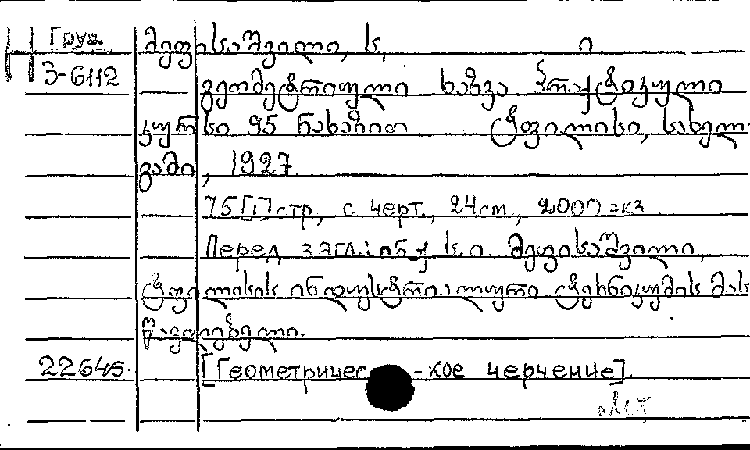 Груз. მეფისაშვილი, ს.
3-6112
გეომეტრიული ხაზვა პრაქტიკული
კურსი 95 ნახაზით ტფილისი, სახელ-
გამი, 1927.
75 [1] стр, с черт., 24 см., 2000 экз
Перед загл: ინჟ ს. ი. მეფისაშვილი,
ტფილისის ინდუსტრიალური ტეხნიკუმის მას-
წავლებელი.
22645. [Геометрическое черчение].